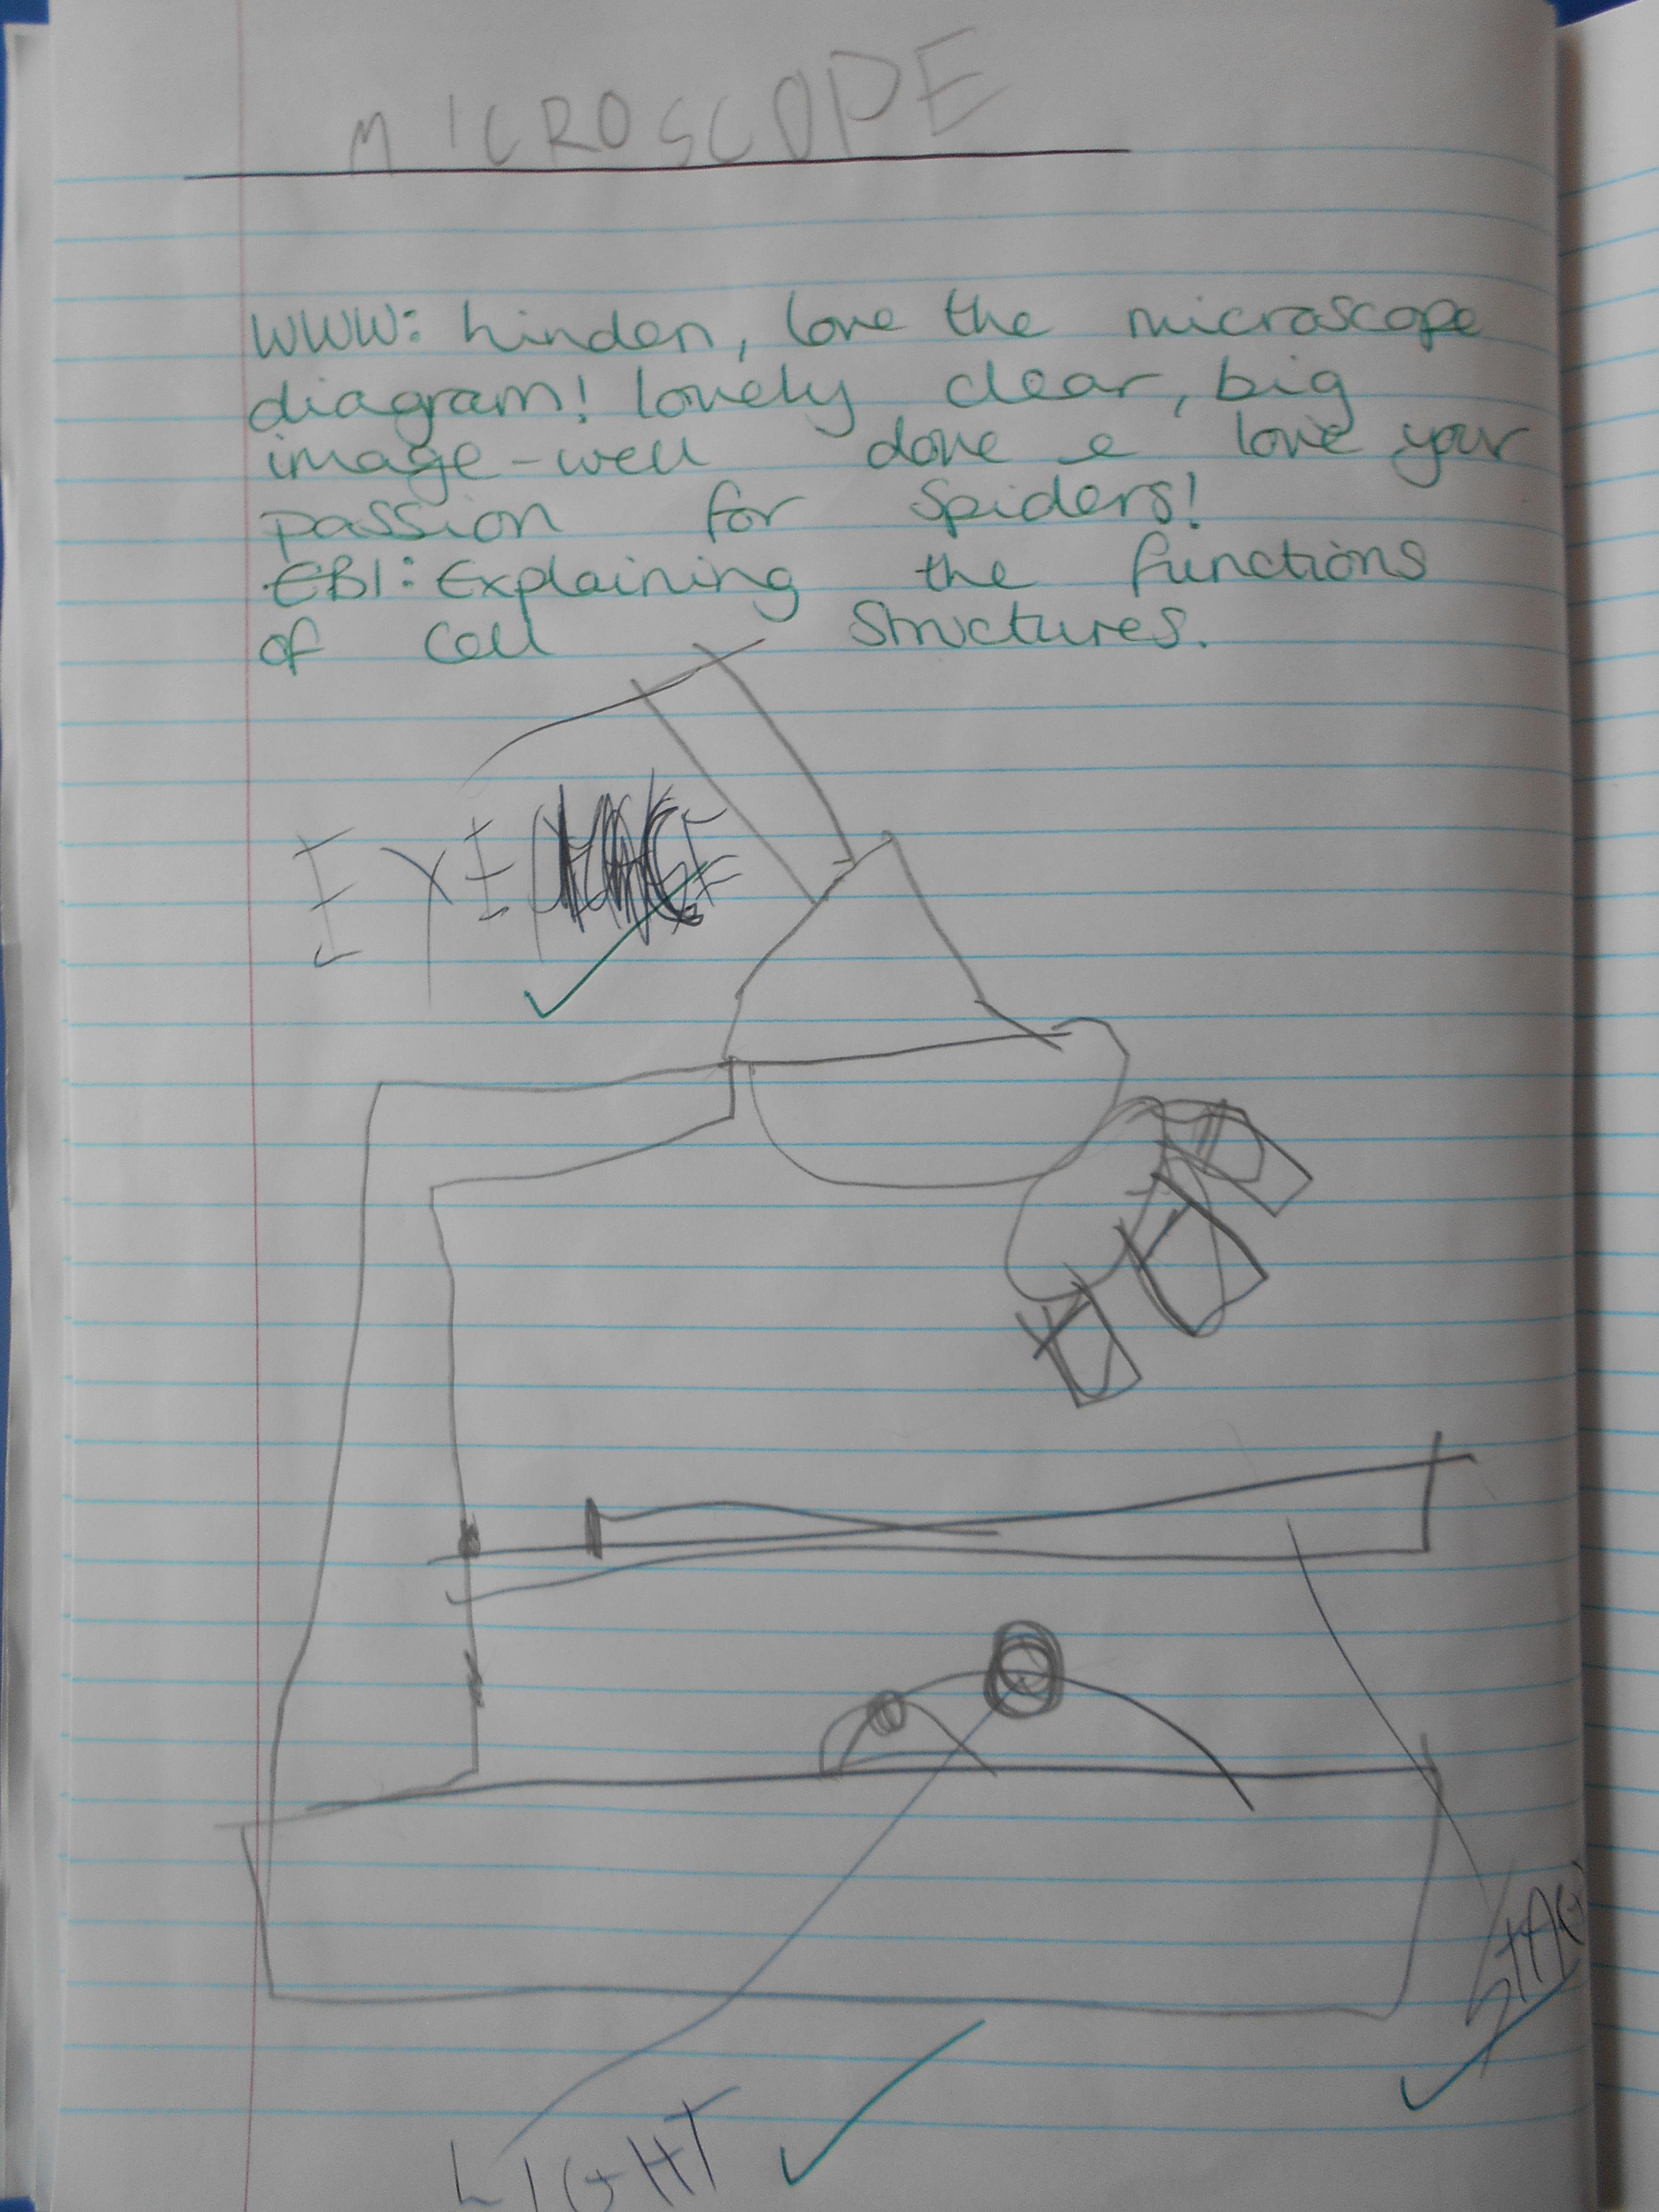 MICROSCOPE
WWW: Linden, love the microscope
diagram! lovely clear, big
image - well done & love your
passion for spiders!
EBI: Explaining the functions
of cell structures.
LIGHT